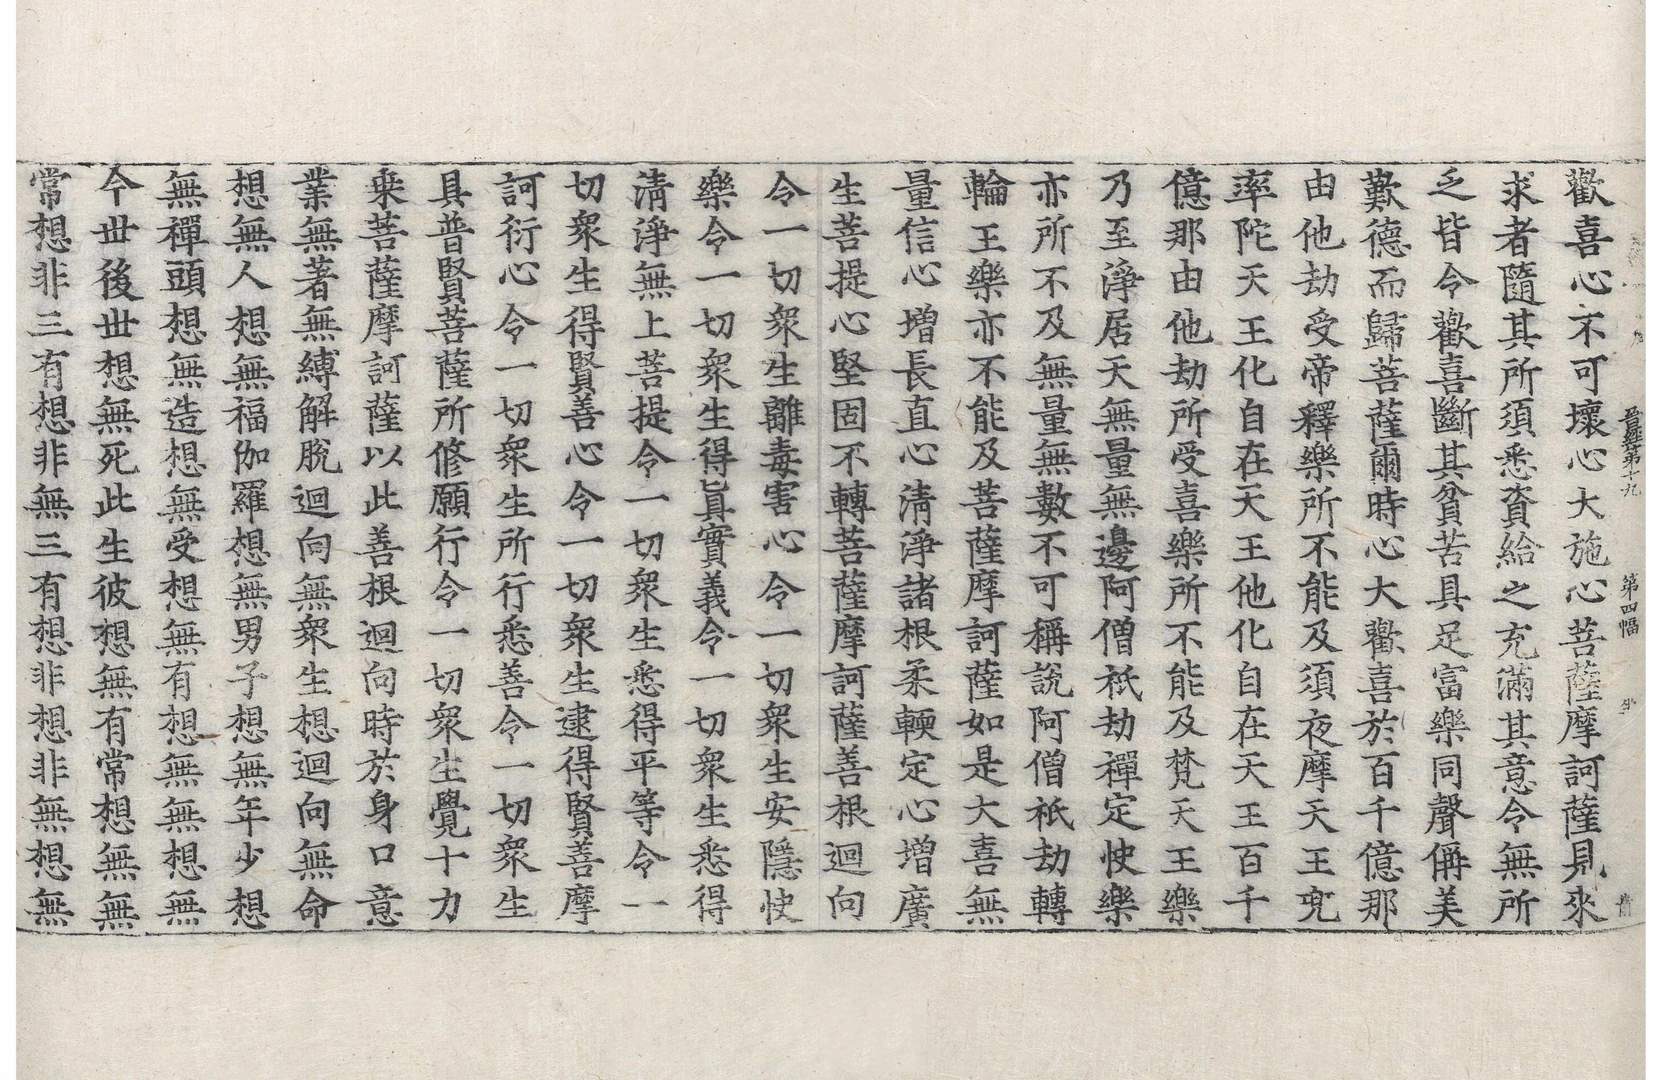 晉經第十九 第四幅
歡喜心不可壞心大施心菩薩摩訶薩見來
求者隨其所須悉資給之充滿其意令無所
乏皆令歡喜斷其貧苦具足富樂同聲稱美
歎德而歸菩薩爾時心大歡喜於百千億那
由他劫受帝釋樂所不能及須夜摩天王兜
率陀天王化自在天王他化自在天王百千
億那由他劫所受喜樂所不能及梵天王樂
乃至淨居天無量無邊阿僧祇劫禪定快樂
亦所不及無量無數不可稱說阿僧祇劫轉
輪王樂亦不能及菩薩摩訶薩如是大喜無
量信心增長直心清淨諸根柔輭定心增廣
生菩提心堅固不轉菩薩摩訶薩善根迴向
令一切衆生離毒害心令一切衆生安隱快
樂令一切衆生得眞實義令一切衆生悉得
清淨無上菩提令一切衆生悉得平等令一
切衆生得賢善心令一切衆生逮得賢善摩
訶衍心令一切衆生所行悉善令一切衆生
具普賢菩薩所修願行令一切衆生覺十力
乘菩薩摩訶薩以此善根迴向時於身口意
業無著無縛解脫迴向無衆生想迴向無命
想無人想無福伽羅想無男子想無年少想
無禪頭想無造想無受想無有想無無想無
今世後世想無死此生彼想無有常想無無
常想非三有想非無三有想非想非無想無